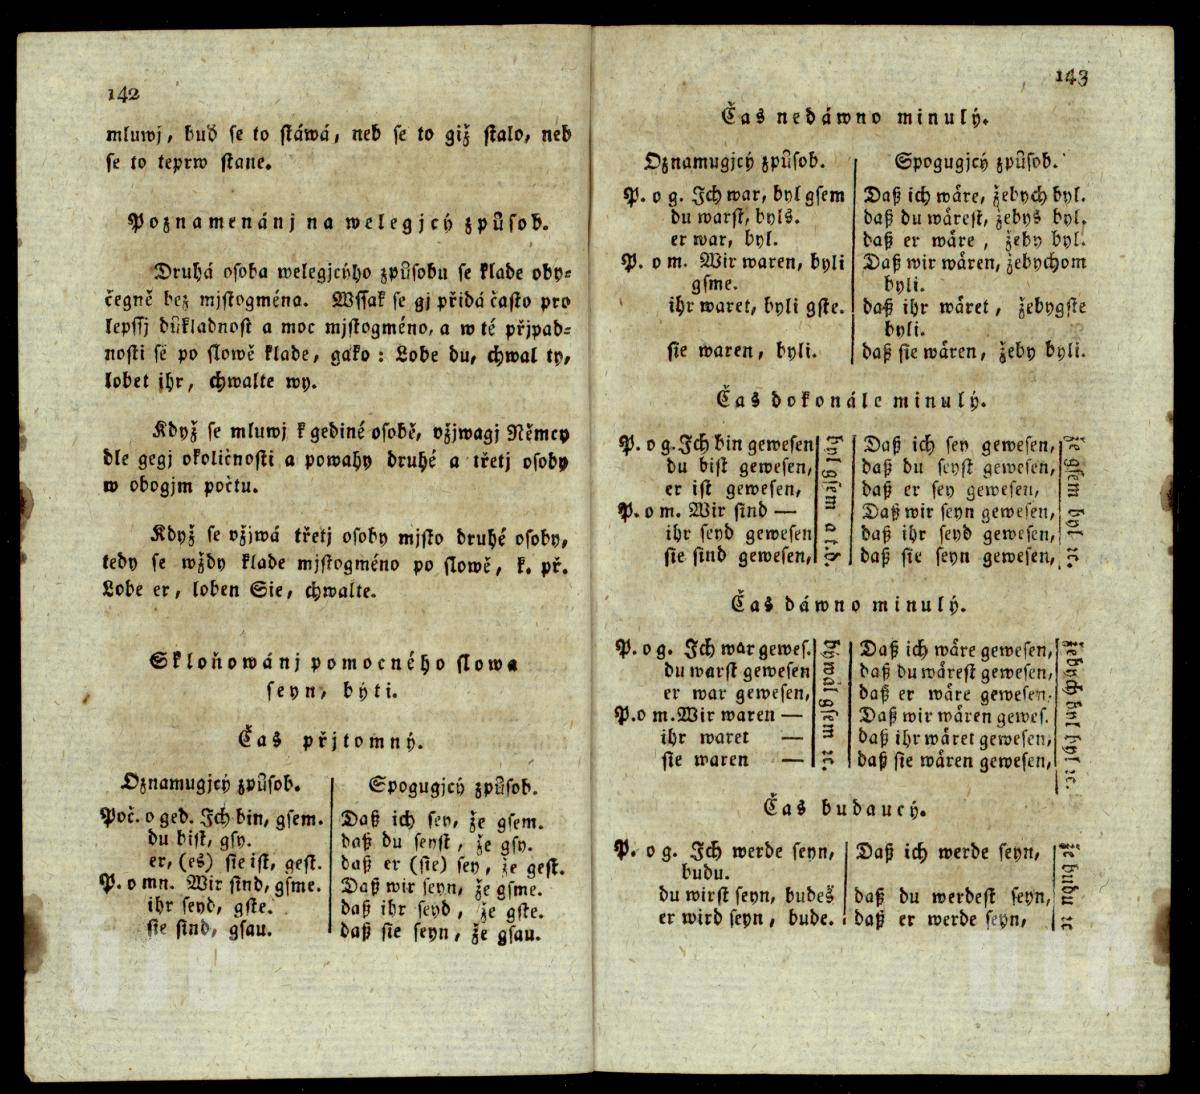 142
mluwj, buď se to stáwá, neb se to giž stalo, neb
se to teprw stane.
Poznamenánj na welegjcý způsob.
Druhá osoba welegjcýho způsobu se klade oby-
čegně bez mjstogména. Wssak se gj přidá často pro
lepssj důkladnost a moc mjstogméno, a w té přjpad-
nosti se po slowě klade, gako: Lobe du, chwal ty,
lobet ihr, chwalte wy.
Když se mluwj k gediné osobě, vžjwagj Němcy
dle gegj okoličnosti a powahy druhé a třetj osoby
w obogjm počtu.
Když se vžjwá třetj osoby mjsto druhé osoby,
tedy se wždy klade mjstogméno po slowě, k. př.
Lobe er, loben Sie, chwalte.
Skloňowánj pomocného slowa
seyn, býti.
Čas přjtomný.
Oznamugjcý způsob. Spogugjcý způsob.
Poč. o ged. Ich bin, gsem. Daß ich sey, že gsem.
du bist, gsy. daß du seyst, že gsy.
er, (es) sie ist, gest. daß er (sie) sey, že gest.
P. o mn. Wir sind, gsme. Daß wir seyn, že gsme.
ihr seyd, gste. daß ihr seyd, že gste.
sie sind, gsau. daß sie seyn, že gsau.
143
Čas nedáwno minulý.
Oznamugjcý způsob. Spogugjcý způsob.
P. o g. Ich war, byl gsem Daß ich wäre, žebych byl.
du warst, byls. daß du wärest, žebys byl.
er war, byl. daß er wäre, žeby byl.
P. o m. Wir waren, byli Daß wir wären, žebychom
gsme. byli.
ihr waret, byli gste. daß ihr wäret, žebygste
byli.
sie waren, byli. daß sie wären, žeby byli.
Čas dokonále minulý.
P. o g. Ich bin gewesen Daß ich sey gewesen,
du bist gewesen, daß du seyst gewesen,
er ist gewesen, daß er sey gewesen,
P. o m. Wir sind — Daß wir seyn gewesen,
ihr seyd gewesen daß ihr seyd gewesen,
sie sind gewesen, daß sie seyn gewesen,
byl gsem a t. d.
že gsem byl ꝛc.
Čas dáwno minulý.
P. o g. Ich war gewes. Daß ich wäre gewesen,
du warst gewesen daß du wärest gewesen,
er war gewesen, daß er wäre gewesen.
P. o m. Wir waren — Daß wir wären gewes.
ihr waret — daß ihr wäret gewesen,
sie waren — daß sie wären gewesen,
býwal gsem ꝛc.
žebych byl byl ꝛc.
Čas budaucý.
P. o g. Ich werde seyn, Daß ich werde seyn,
budu.
du wirst seyn, budeš daß du werdest seyn,
er wird seyn, bude. daß er werde seyn,
že budu ꝛc